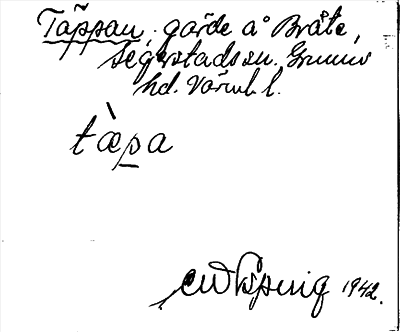 Täppan, gärde å Bråte,
Segerstads sn. Grums
hd. Värml. l.
tæ̀pa
1942.